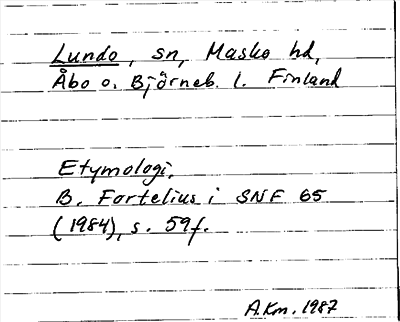 Lundo, sn, Masko hd,
Åbo o. Björneb. l. Finland
Etymologi.
B. Fortelius i SNF 65
(1984), s. 59f.
A.Km. 1987